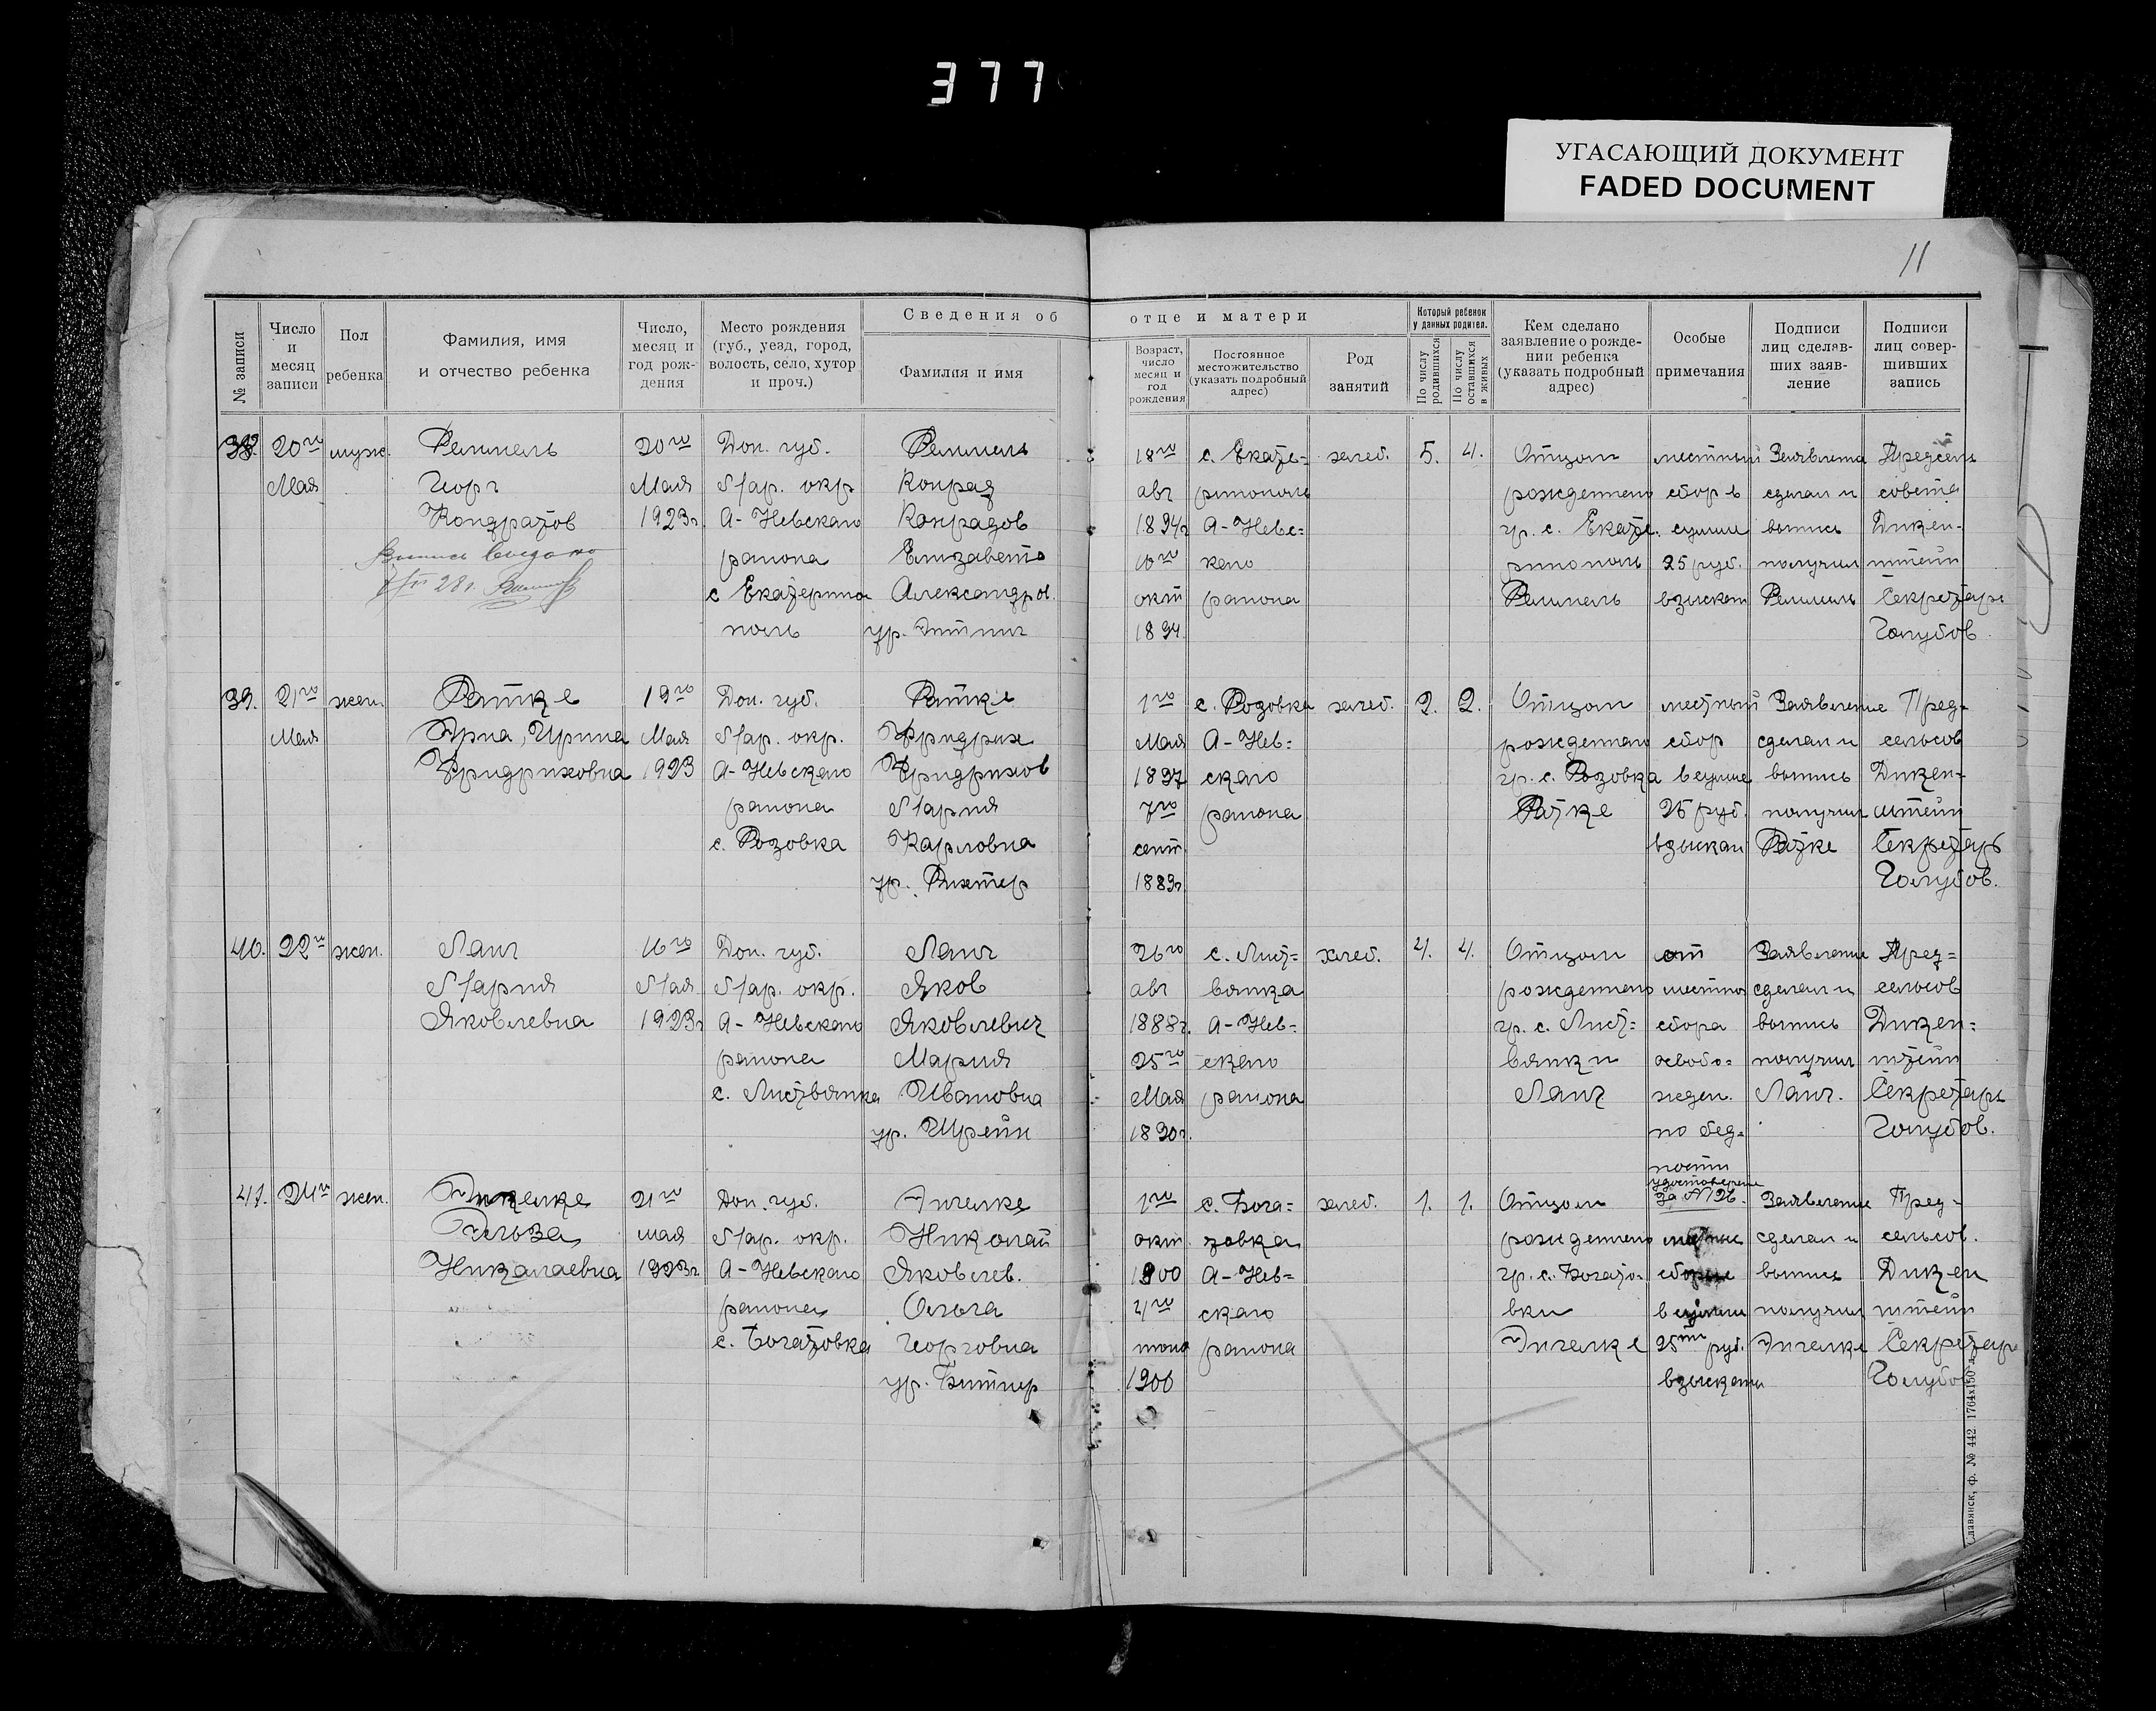 377
УГАСАЮЩИЙ ДОКУМЕНТ
FADED DOCUMENT
11
№ записи
Число и месяц записи
Пол ребенка
Фамилия, имя и отчество ребенка
Число, месяц и год рождения
Место рождения (губ., уезд, город, волость, село, хутор и проч.)
Сведения об отце и матери
Фамилия и имя
Возраст, число месяц и год рождения
Постоянное местожительство (указать подробный адрес)
Род занятий
Который ребенок у данных родител.
По числу родившихся
По числу оставшихся в живых
Кем сделано заявление о рождении ребенка (указать подробный адрес)
Особые примечания
Подписи лиц сделавших заявление
Подписи лиц совершивших запись
38. 20го муж. Реммель 20го Дон. губ. Реммель 18го с. Екате= хлеб. 5. 4. Отцом местный Заявление Предсель
Мая Георг Мая Мар. окр Конрад авг ринополь рожденного сбор в сделал и совета
Кондратов 1923г. А-Невского Конрадов 1894г А-Невс= гр. с. Екате. сумме выпись Дикен-
района Елизавета 10го кого ринополь 25 руб. получил штейн
с Екатерино Александров. окт района Реммель взыскан Реммель Секретарь
поль ур. 1894. Голубов.
39. 21го жен. Ратке 19го Дон. губ. Ратке 1го с. Розовка хлеб. 2. 2. Отцом местный Заявление Пред-
Мая Эрна, Ирина Мая Мар. окр. Фридрих Мая А-Нев= рожденного сбор сделал и сельсов
Фридриховна 1923 А-Невского Фридрихов 1897 ского гр. с. Розовка в сумме выпись Дикен-
района Мария 7го района Ратке 25 руб. получил штейн
с. Розовка Карловна сент. взыскан Ратке Секретарь
ур. Рихтер 1889г Голубов.
40. 22го жен. Ланг 16го Дон. губ. Ланг 26го с. Лист= хлеб. 4. 4. Отцом от Заявление Пред=
Мария Мая Мар. окр. Яков авг вянка рожденного местно сделал и сельсов
Яковлевна 1923г А-Невского Яковлевич 1888г. А-Нев= гр. с. Лист= сбора выпись Дикен=
района Мария 25го ского вянки освобо= получил штейн
с. Листвянка Ивановна Мая района Ланг жден. Ланг. Секретарь
ур. Шрейн 1890г. по бед= Голубов.
ности
удостоверение
41. 24го жен. 21го Дон. губ. Дигелке 1го с. Бога= хлеб. 1. 1. Отцом за №26. Заявление Пред-
Эльза мая Мар. окр. Николай окт. товка рожденного сделал и сельсов.
Николаевна 1923г А-Невского Яковлев. 1900 А-Нев= гр. с. Богато- выпись Дикен
района Ольга 4го ского вки в сумме получил штейн
с. Богатовка Георговна района Дигелке 25 руб. Дигелке Секретарь
ур. Битнер 1900 взыскан Голубов
Славянск, ф. № 442 1764х150